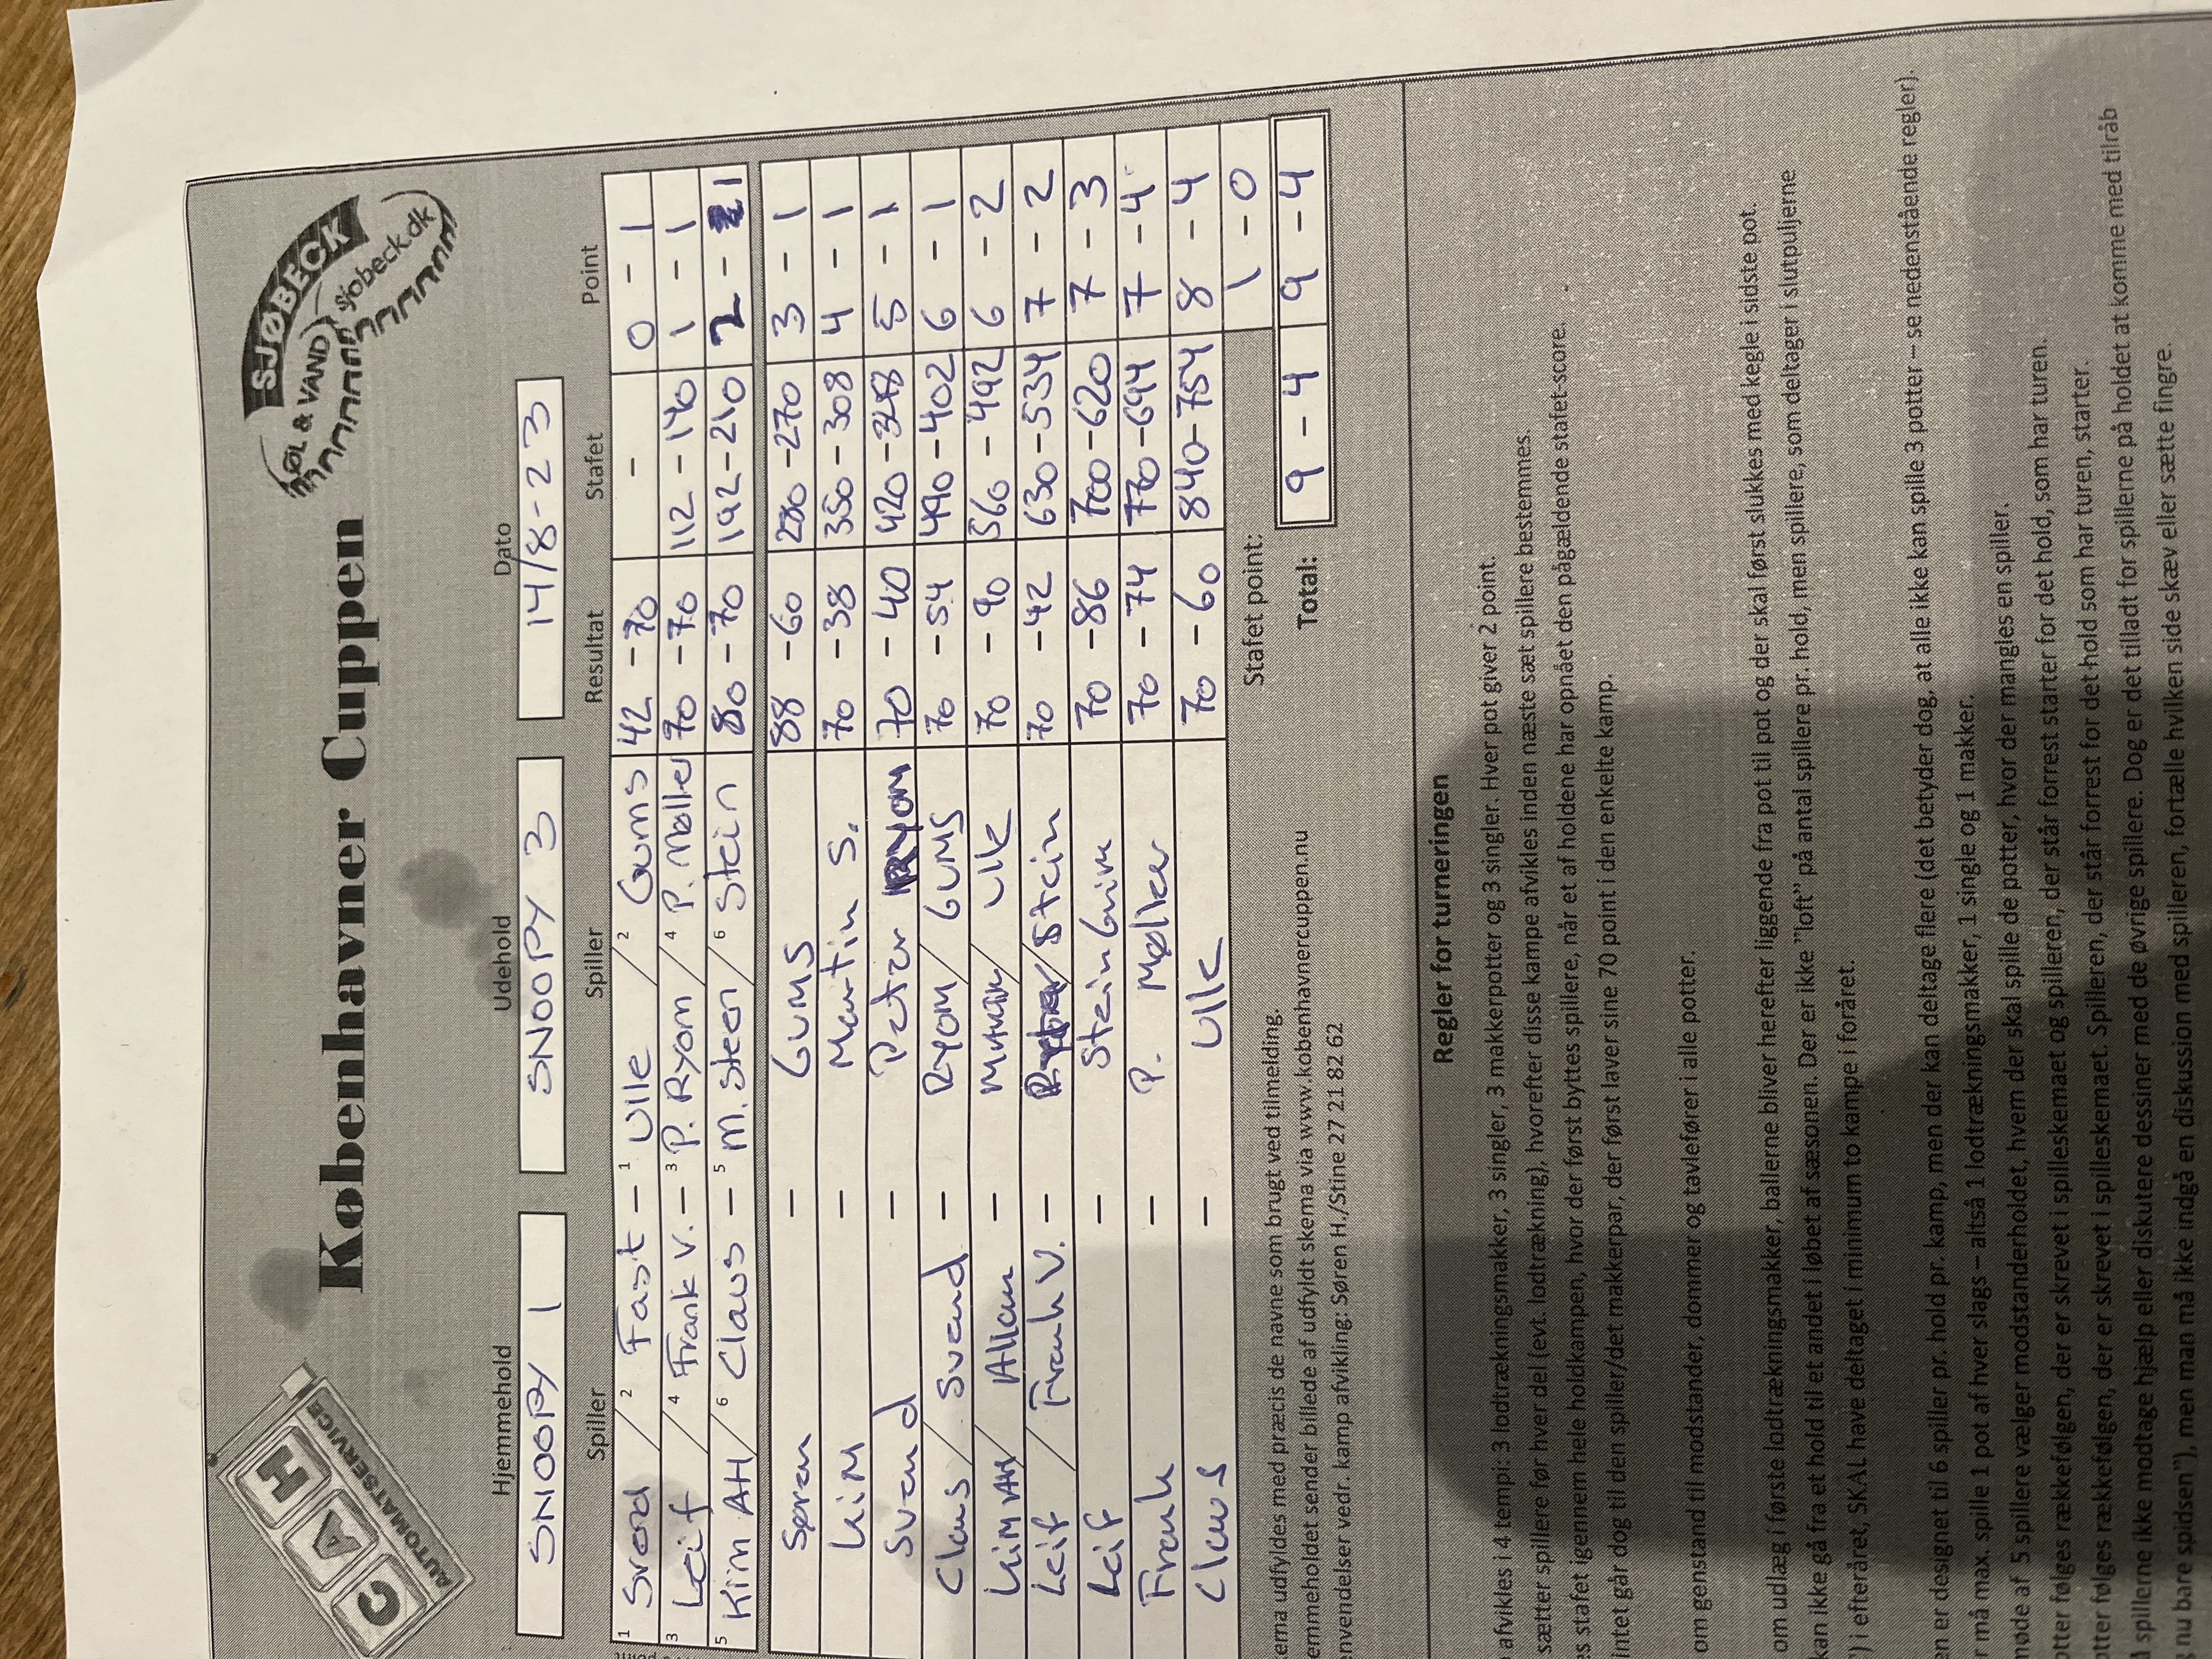 CAH
AUTOMATSERVICE
Københavner Cuppen
ØL & VAND
SJØBECK
sjobeck.dk
Hjemmehold Udehold Dato
SNOOPY 1 SNOOPY 3 14/8-23
Spiller Spiller Resultat Stafet Point
1 Svend / 2 Fast - 1 Ulle / 2 Gums 42 - 70 - 0 - 1
3 Leif / 4 Frank V. - 3 P. Ryom / 4 P. Møller 70 - 70 112 - 140 1 - 1
5 Kim AH / 6 Claus - 5 M. Steen / 6 Stein 80 - 70 192 - 210 2 - 1
Søren - GUMS 88 - 60 280 - 270 3 - 1
KIM - Martin S. 70 - 38 350 - 308 4 - 1
Svend - Peter RYOM 70 - 40 420 - 348 5 - 1
Claus / Svend - RYOM / GUMS 70 - 54 490 - 402 6 - 1
KIM AH / Allan - Martin / Ulle 70 - 90 560 - 492 6 - 2
Leif / Frank V. - / Stein 70 - 42 630 - 534 7 - 2
Leif - Stein Grim 70 - 86 700 - 620 7 - 3
Frank - P. Møller 70 - 74 770 - 694 7 - 4
Claus - Ulle 70 - 60 840 - 754 8 - 4
Stafet point: 1 - 0
Total: 9 - 4 9 - 4
erna udfyldes med præcis de navne som brugt ved tilmelding.
emmeholdet sender billede af udfyldt skema via www.københavnercuppen.nu
envendelser vedr. kamp afvikling: Søren H./Stine 27 21 82 62
Regler for turneringen
afvikles i 4 tempi: 3 lodtrækningsmakker, 3 singler, 3 makkerpotter og 3 singler. Hver pot giver 2 point.
sætter spillere før hver del (evt. lodtrækning), hvorefter disse kampe afvikles inden næste sæt spillere bestemmes.
es stafet igennem hele holdkampen, hvor der først byttes spillere, når et af holdene har opnået den pågældende stafet-score.
intet går dog til den spiller/det makkerpar, der først laver sine 70 point i den enkelte kamp.
om genstand til modstander, dommer og tavlefører i alle potter.
om udlæg i første lodtrækningsmakker, ballerne bliver herefter liggende fra pot til pot og der skal først slukkes med kegle i sidste pot.
kan ikke gå fra et hold til et andet i løbet af sæsonen. Der er ikke "loft" på antal spillere pr. hold, men spillere, som deltager i slutpuljerne
) i efteråret, SKAL have deltaget i minimum to kampe i foråret.
en er designet til 6 spiller pr. hold pr. kamp, men der kan deltage flere (det betyder dog, at alle ikke kan spille 3 potter – se nedenstående regler).
r må max. spille 1 pot af hver slags – altså 1 lodtrækningsmakker, 1 single og 1 makker.
møde af 5 spillere vælger modstanderholdet, hvem der skal spille de potter, hvor der mangles en spiller.
otter følges rækkefølgen, der er skrevet i spilleskemaet og spilleren, der står forrest starter for det hold, som har turen.
tter følges rækkefølgen, der er skrevet i spilleskemaet. Spilleren, der står forrest for det hold som har turen, starter.
å spillerne ikke modtage hjælp eller diskutere dessiner med de øvrige spillere. Dog er det tilladt for spillerne på holdet at komme med tilråb
nu bare spidsen"), men man må ikke indgå en diskussion med spilleren, fortælle hvilken side skæv eller sætte fingre.